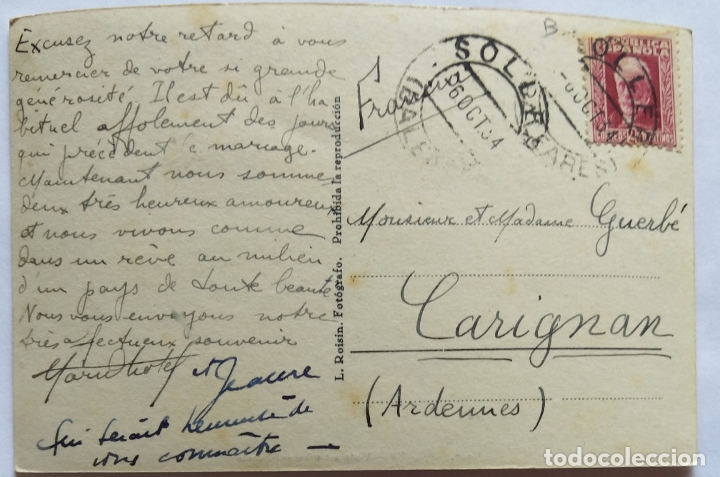 Excusez notre retard à vous
remercier de votre si grande
générosité Il est dû à l'ha
bituel affolement des jours
qui précèdent ce mariage.
Maintenant nous sommes
deux très heureux amoureux
et nous vivons comme
dans un rêve au milieu
d'un pays de toute beauté
Nous vous envoyons notre
très affectueux souvenir
et Jeanne
qui serait heureuse de
vous connaître
L. Roisin. Fotógrafo. Prohibida la reproducción
Francia
SOLLER
6 OCT 34
(BALEARES)
REPUBLICA
ESPAÑOLA
Monsieur et Madame Guerbé
Carignan
(Ardennes)
todocoleccion